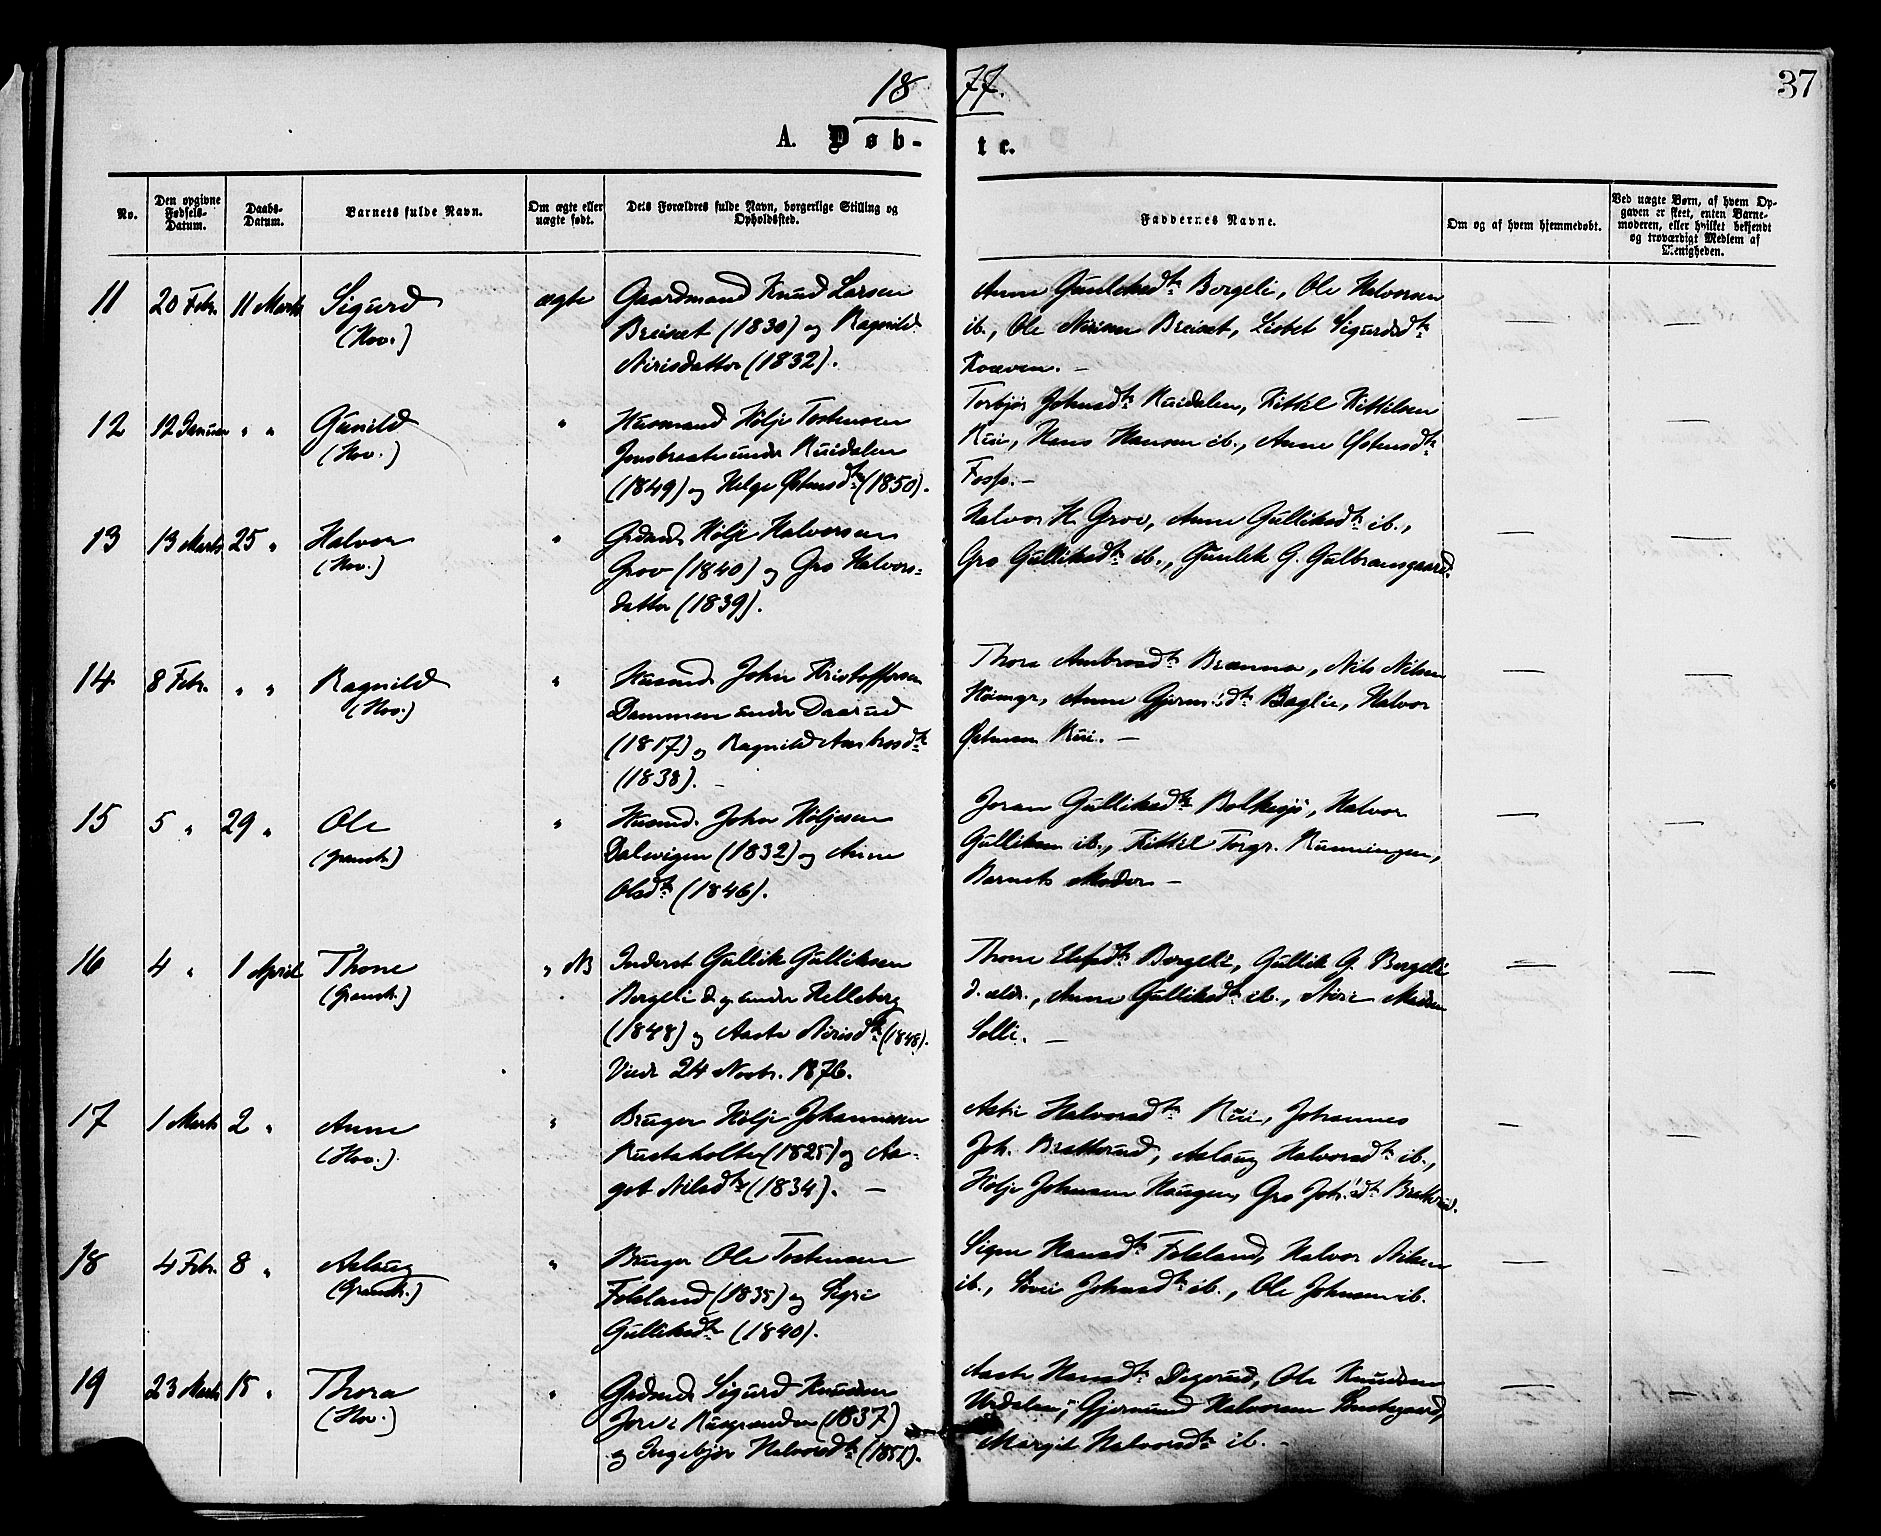 18 77.
37
A. Døb- te.
No.
Den opgivne Fødsels-Datum.
Daabs-Datum.
Barnets fulde Navn.
Om ægte eller uægte født.
Dets Forældres fulde Navn, borgerlige Stilling og Opholdssted.
Faddernes Navne.
Om og af hvem hjemmedøbt.
Ved uægte Børn, af hvem Opgaven er skeet, enten Barnemoderen, eller hvilket bekjendt og troværdigt Medlem af Menigheden.
11 20 Febr. 11 Marts Sigurd ægte Gaardmand Knud Larsen
(Hov.) Breiset (1830) og Ragnild
Nirisdatter (1832).
Anne Gunleiksdtr Bergeli, Ole Halvorsen
ib., Ole Nirisen Breiset, Lisbet Sigurdsdtr
— —
12 12 Januar " " Gunild " Husmand Hølje Tostensen
(Hov.) Jonsbraate under Ruidalen
(1849) og Helge Østensdtr (1850).
Torbjør Johnsdtr Ruidalen, Kittil Kittilsen
Rui, Hans Hansen ib., Anne Østensdtr
Foss. —
— —
13 13 Marts 25 " Halvor " Grdmd. Hølje Halvorsen
(Hov.) Grov (1840) og Gro Halvors-
datter (1839).
Halvor H. Grov, Anne Gulliksdtr ib.,
Gro Gulliksdtr ib., Gunlek G. Gulbransgaard.
— —
14 8 Febr. " " Ragnild " Husmd. John Kristoffersen
(Hov.) Dammen under Daarud
(1817) og Ragnild Ambrosdtr
(1838). —
Thora Ambrosdtr Brænna, Nils Nilsen
Anne Baglie, Halvor
Østensen Rui. —
— —
15 5 " 29 " Ole " Husmd. John Høljesen
(Gransh.) Dalevigen (1832) og Anne
Olsdtr (1846).
Joran Gulliksdtr Bolkesjø, Halvor
Gulliksen ib., Kittil Torgr. Runningen,
Barnets Moder —
— —
16 4 " 1 April Thone " NB Inderst Gullik Gulliksen
(Gransh.) Bergeli d. y. under Helleberg
(1848) og Aaste Nirisdtr (1848).
Viede 24 Novbr. 1876.
Thone Elefsdtr Bergeli, Gullik G. Bergeli
d. ældr., Anne Gulliksdtr ib., Niri Madsen
Solli. —
— —
17 1 Marts 2 " Anne " Bruger Hølje Johannesen
(Hov.) Rustaholte (1825) og Aa-
got Nilsdtr (1834). —
Halvorsdtr Rui, Johannes
Joh. Bratterud, Aslaug Halvorsdtr ib.,
Hølje Johnsen Haugen, Gro Joh.'sdtr Bratterud.
— —
18 4 Febr. 8 " Aslaug " Bruger Ole Tostensen
(Gransh.) Folsland (1835) og Sigri
Gulliksdtr (1840).
Signe Hansdtr Folsland, Halvor Nilsen
ib., Johnsdtr ib., Ole Johnsen ib.
— —
19 23 Marts 15 " Thora " Grdmd. Sigurd Knudsen
(Hov.) Jore i (1837)
og Ingebjør Halvorsdtr (1851).
Aaste Hansdtr Digerud, Ole Knudsen
Urdalen, Gjermund Halvorsen
Margit Halvorsdtr ib. —
— —